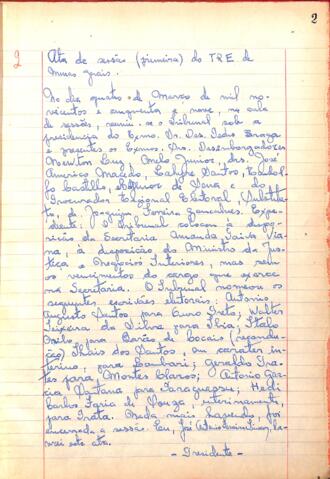 2
2
Ata de sessão (primeira) do TRE de
Minas Gerais.
No dia quatro de Março de mil no-
vecentos e quarenta e nove, na sala
de sessões, reuniu-se o Tribunal sob a
presidencia do Exmo. Sr. Des. Pedro Braga
e presentes os Exmos. Srs. Desembargadores
Newton Luz, Melo Junior, drs. José
Americo Macedo, Eurype Santos,
Castillo, Agenor de Sena e o
Procurador Regional Eleitoral (substitu-
to), dr. Joaquim Ferreira Gonçalves. Expe-
diente: O Tribunal colocou à dispo-
sição da Secretaria Amanda Vi-
ana, à disposição do Ministro da Jus-
tiça e Negocios Interiores, mas sem
os vencimentos do cargo que exerce
na Secretaria. O Tribunal nomeou os
seguintes escrivães eleitorais: Antonio
Augusto Santos para Ouro Preto; Walter
Teixeira da Silva, para Ibia; Italo
para Barão de Cocais (recondu-
ção) Thais dos Santos, em carater in-
terino, para Geraldo Pra-
tes para, Montes Claros; Antonio Gar-
cia para Paraguassu;
Carlos Faria de Souza, interinamente,
para Prata. Nada mais havendo, foi
encerrada a sessão. Eu, José la-
vrei esta ata.
- Presidente -